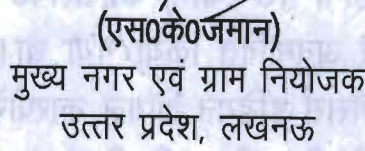 (एस0के0जमान)
मुख्य नगर एवं ग्राम नियोजक
उत्तर प्रदेश, लखनऊ